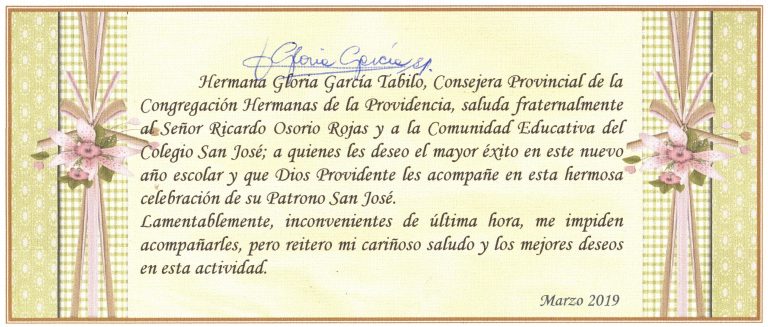 + Gloria García sp.
Hermana Gloria García Tabilo, Consejera Provincial de la
Congregación Hermanas de la Providencia, saluda fraternalmente
al Señor Ricardo Osorio Rojas y a la Comunidad Educativa del
Colegio San José; a quienes les deseo el mayor éxito en este nuevo
año escolar y que Dios Providente les acompañe en esta hermosa
celebración de su Patrono San José.
Lamentablemente, inconvenientes de última hora, me impiden
acompañarles, pero reitero mi cariñoso saludo y los mejores deseos
en esta actividad.
Marzo 2019